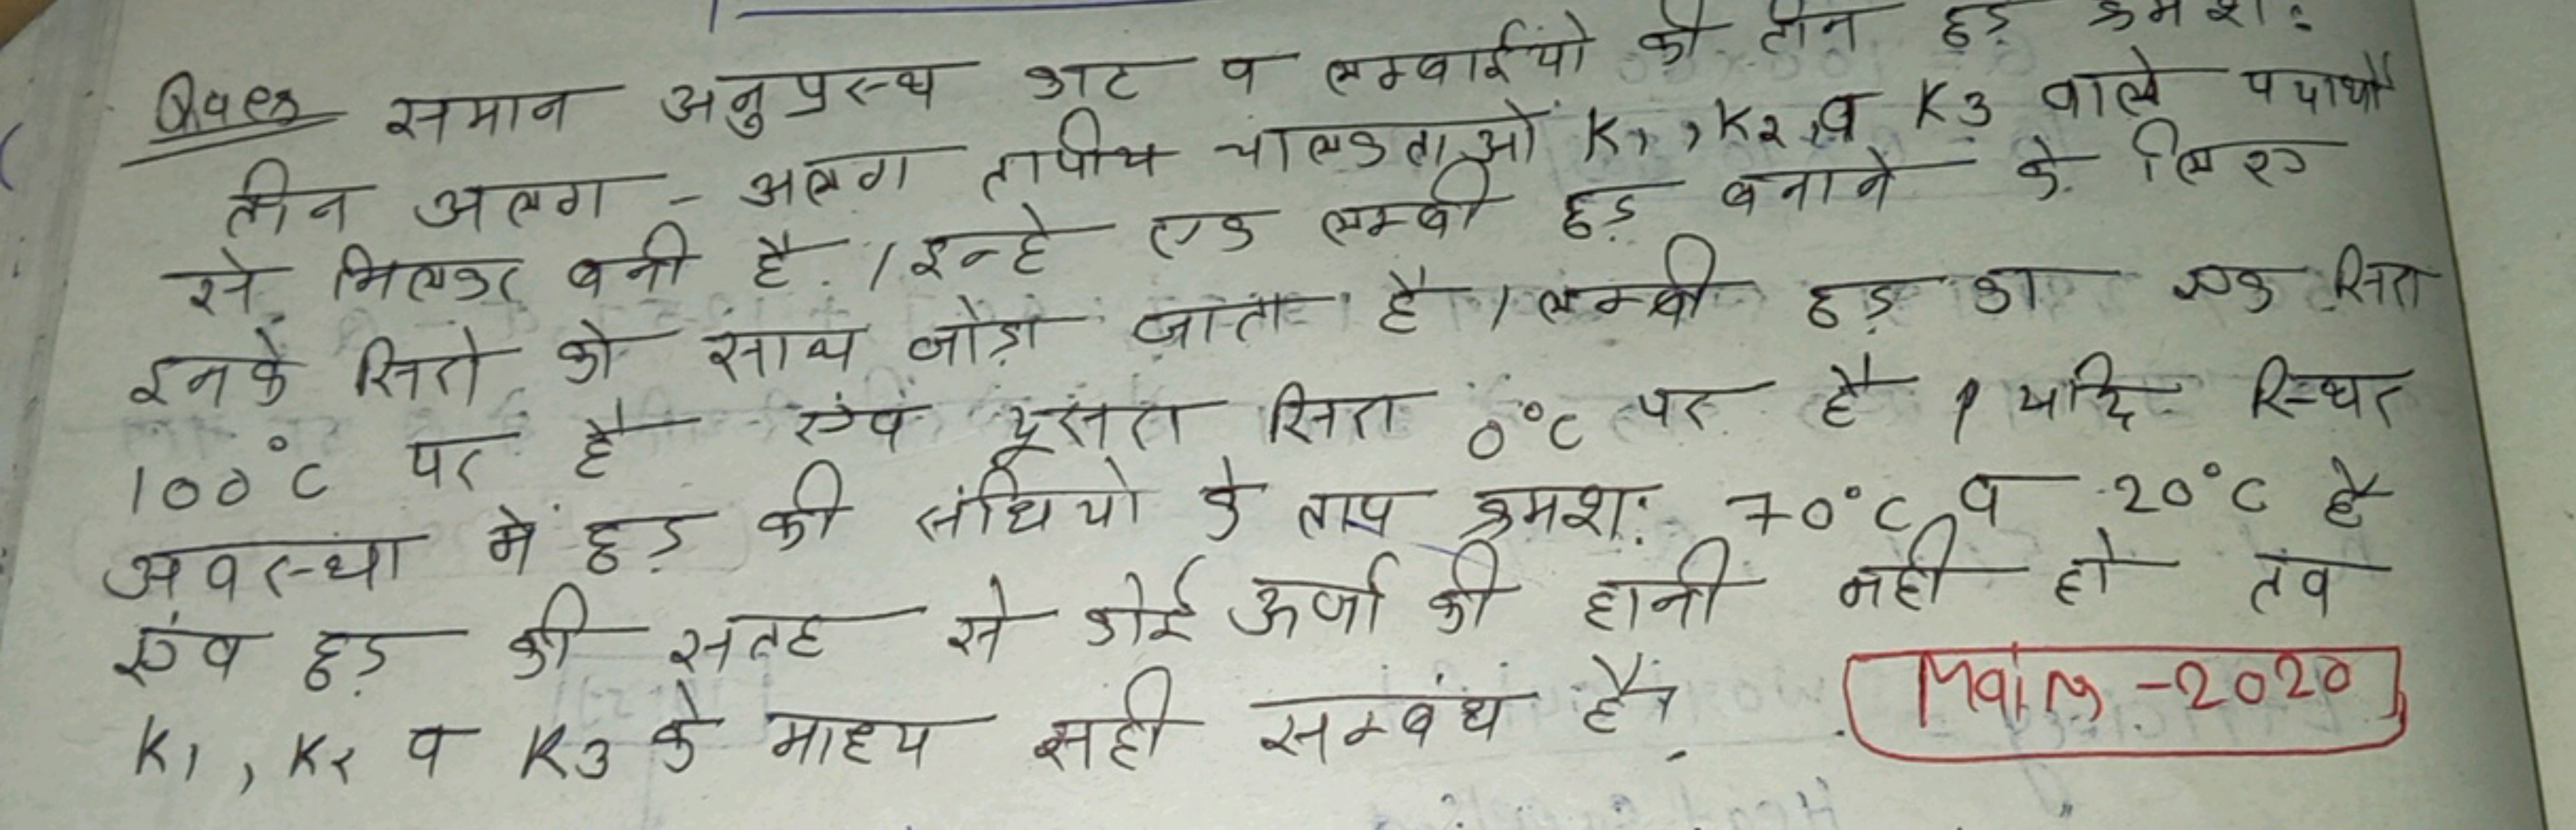 Ques समान अनुप्रस्थ काट व लम्बाईयो की तीन छड़ क्रमशः
तीन अलग - अलग तापीय चालकताओं K1, K2, व K3 वाले पदार्थो
से मिलकर बनी है। इन्हे एक लम्बी छड़ बनाने के लिए
इनके सिरो को साथ जोड़ा जाता है। लम्बी छड़ का एक सिरा
100°C पर है एंव दूसरा सिरा 0°C पर है। यदि स्थिर
अवस्था मे छड़ की संधियो के ताप क्रमशः 70°C व 20°C है
एंव छड़ की सतह से कोई ऊर्जा की हानी नही हो तव
K1, K2 व K3 के माध्य सही सम्बंध है?
Main -2020